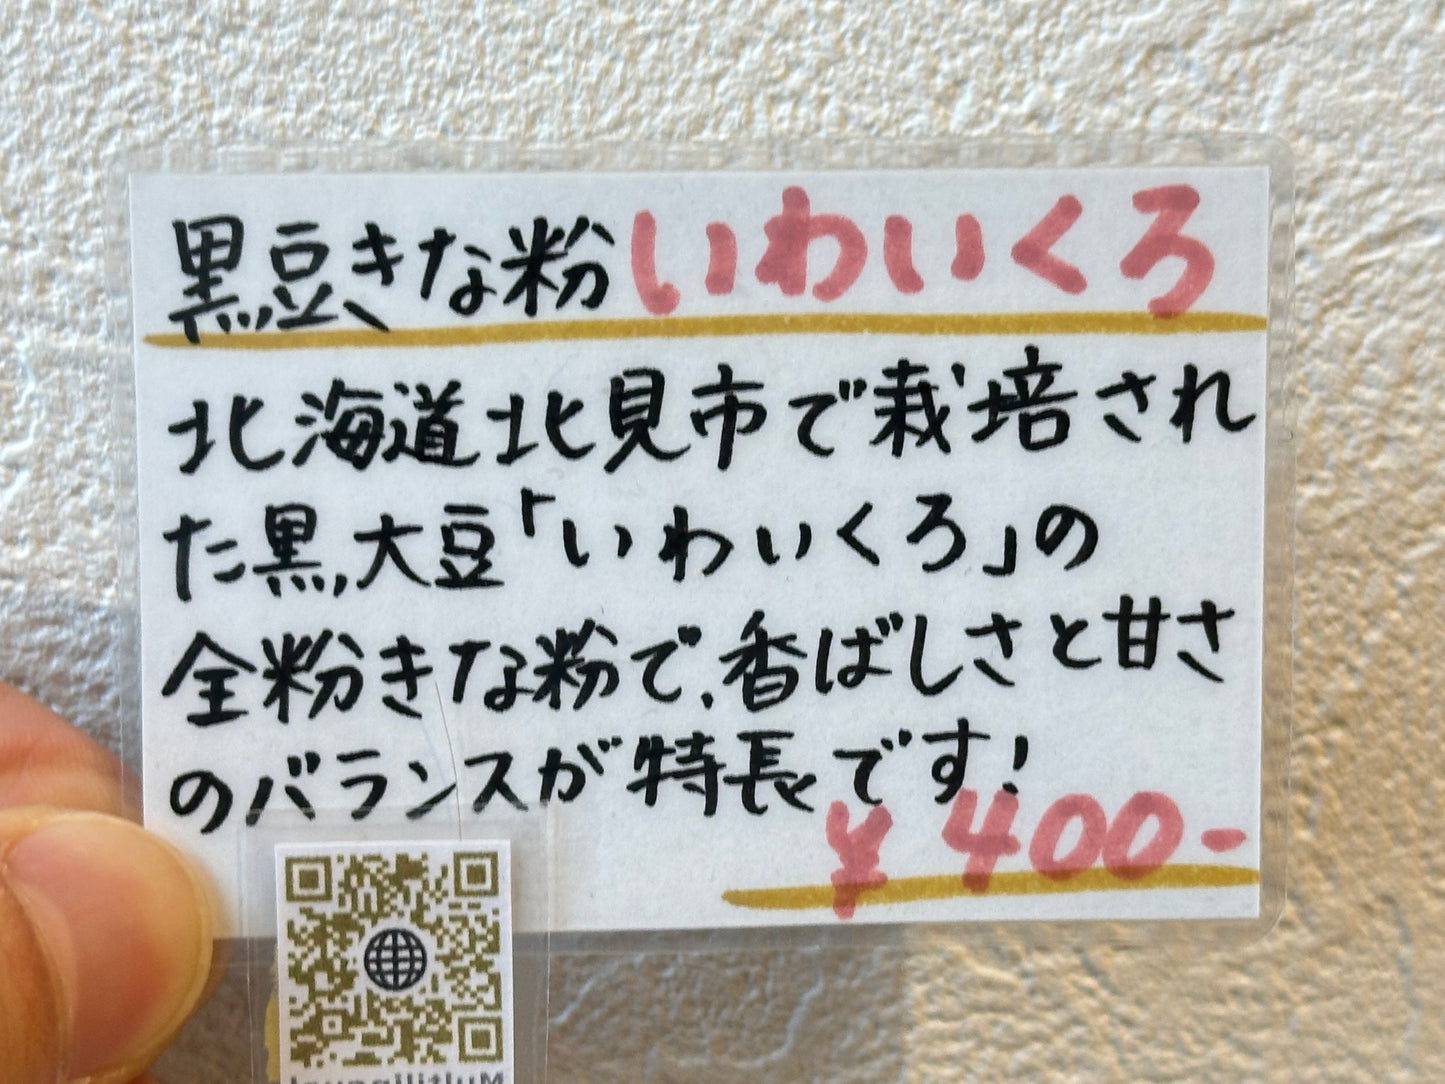 黒豆きな粉いわいくろ
北海道北見市で栽培され
た黒大豆「いわいくろ」の
全粉きな粉で、香ばしさと甘さ
のバランスが特長です!
¥400-